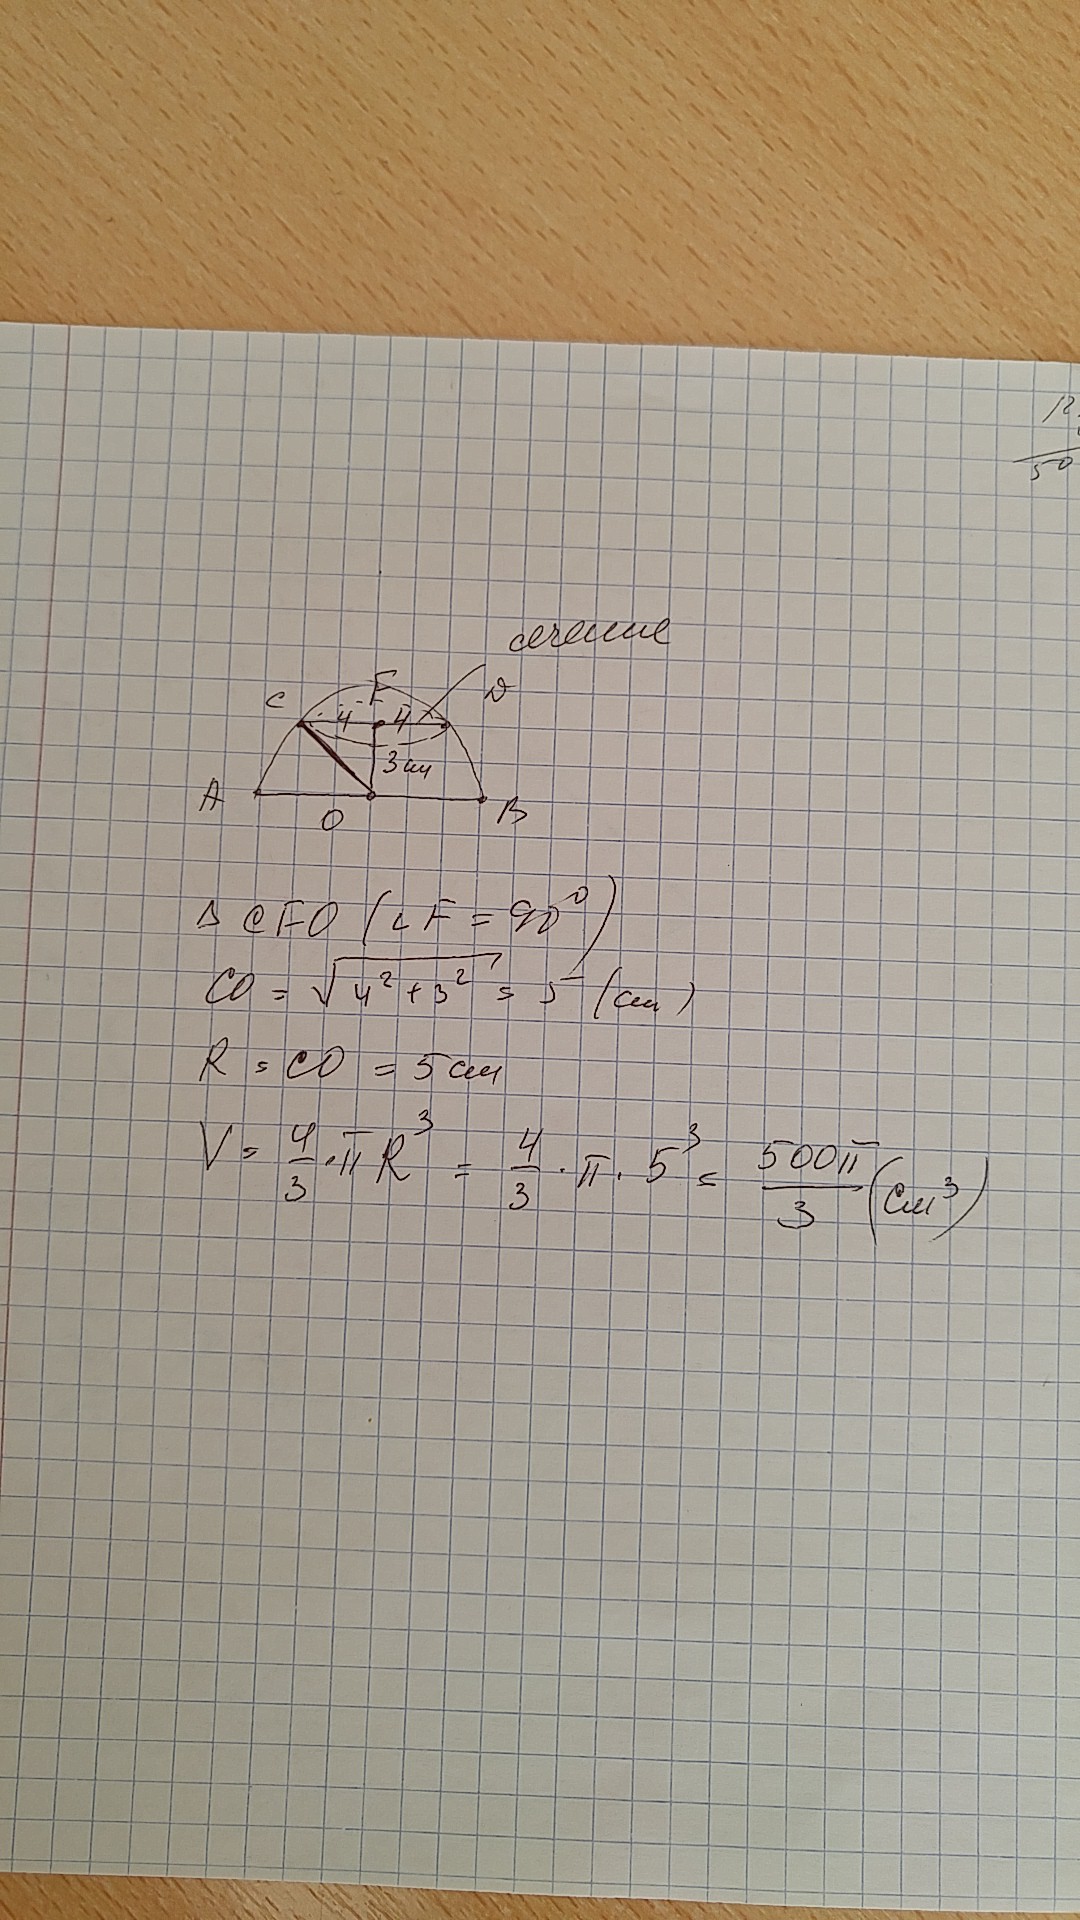 12
50
сечение
C F D
4 4
3 см
A O B
Δ CFO (∠F = 90°)
CO = √4² + 3² = 5 (см)
R = CO = 5 см
V = 4/3 · π R³ = 4/3 · π · 5³ = 500π/3 (см³)